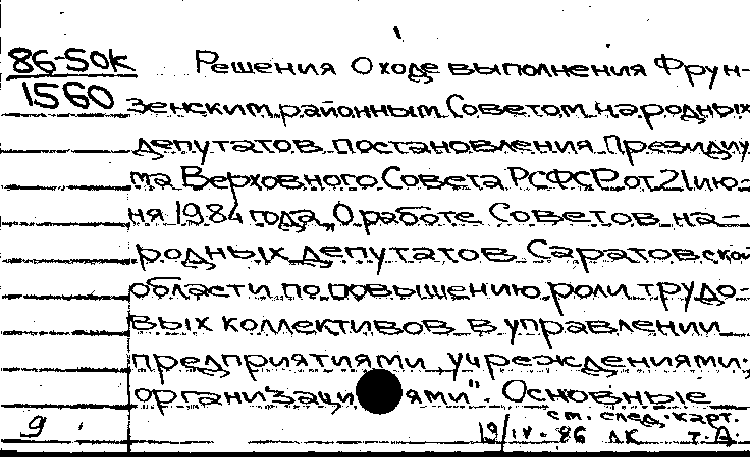 86-50К
1560
Решения О ходе выполнения Фрун-
зенским районным Советом народных
депутатов постановления Президиу
ма Верховного Совета РСФСР от 21 ию-
ня 1984 года „О работе Советов на-
родных депутатов Саратовской
области по повышению роли трудо-
вых коллективов в управлении
предприятиями, учреждениями,
организациями". Основные
см. след. карт.
9
19/IV-86 ЛК т.А.